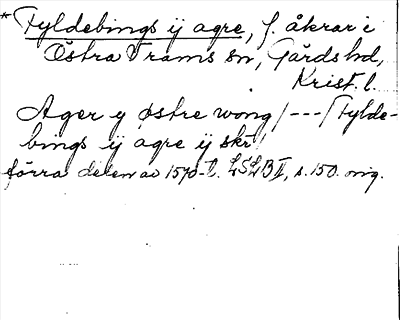 * Fyldebings ij agre, f. åkrar i
Östra Vrams sn, Gärds hd,
Krist. l.
Ager y østre wong /---/ Fylde-
bings ij agre ij skr/
förra delen av 1570-t. LSLB II, s. 150. orig.